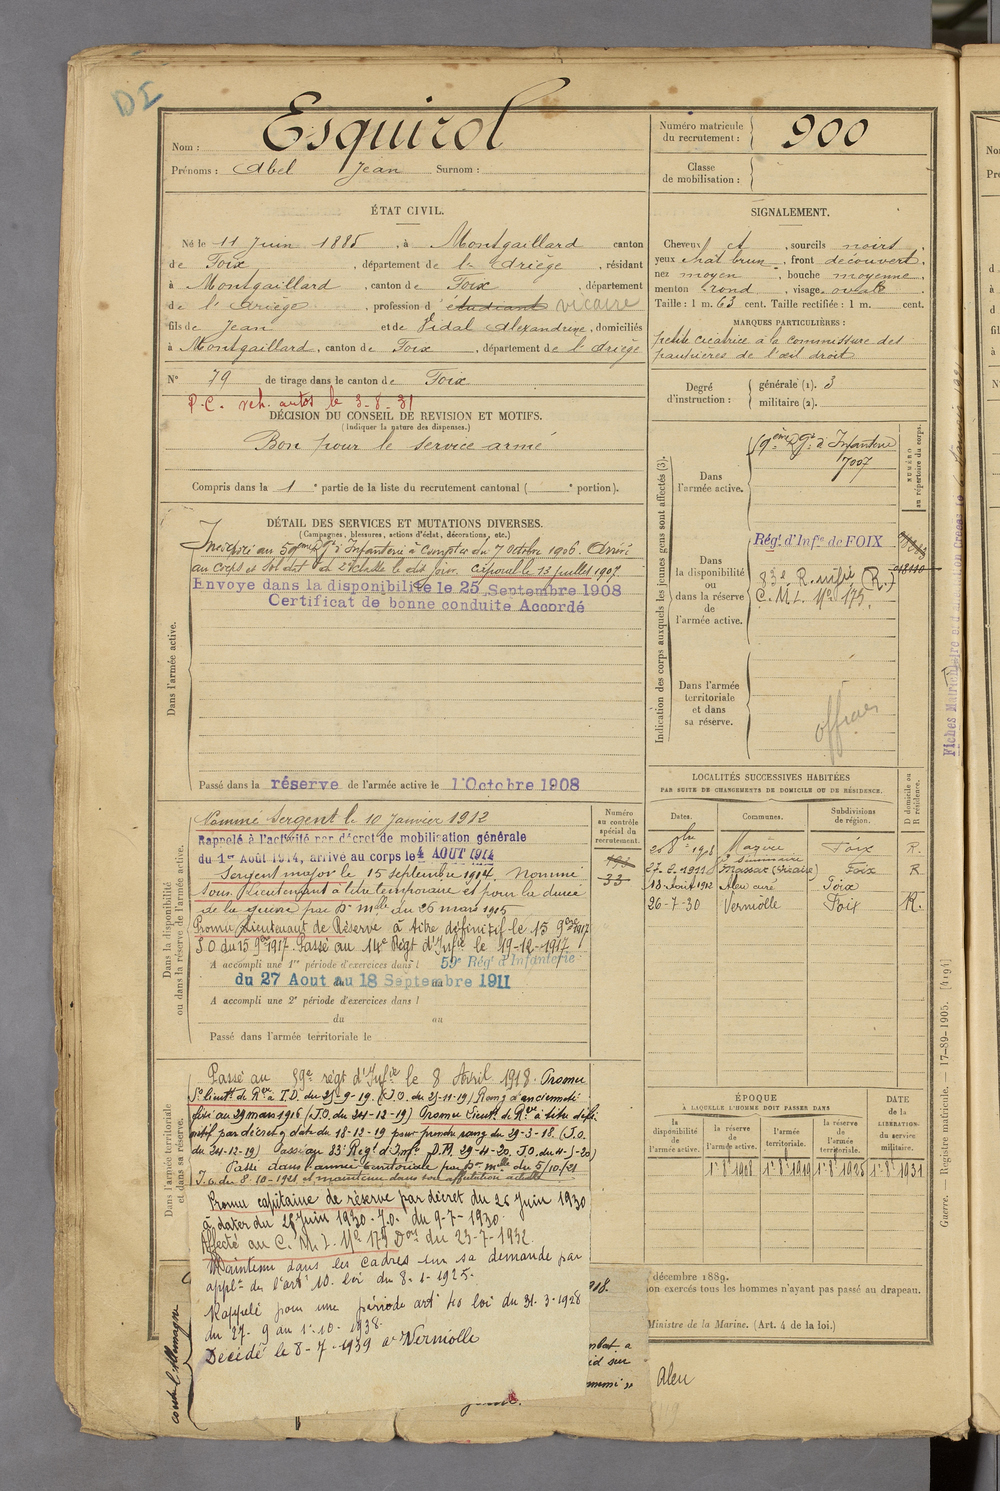 DI
Nom : Esquirol
Prénoms : Abel Jean Surnom :
Numéro matricule du recrutement : 900
Classe de mobilisation :
ÉTAT CIVIL.
Né le 11 Juin 1885, à Montgaillard canton
de Foix, département de l'Ariège, résidant
à Montgaillard, canton de Foix, département
de l'Ariège, profession d'étudiant vicaire
fils de Jean et de Vidal Alexandrine, domiciliés
à Montgaillard, canton de Foix, département de l'Ariège
N° 79 de tirage dans le canton de Foix
P.C. veh. autos le 3-8-31
DÉCISION DU CONSEIL DE REVISION ET MOTIFS.
(Indiquer la nature des dispenses.)
Bon pour le service armé
Compris dans la 1e partie de la liste du recrutement cantonal ( e portion).
SIGNALEMENT.
Cheveux et, sourcils noirs,
yeux chat brun, front découvert,
nez moyen, bouche moyenne,
menton rond, visage ovale
Taille : 1 m. 63 cent. Taille rectifiée : 1 m. cent.
MARQUES PARTICULIÈRES :
petite cicatrice à la commissure des
paupières de l'œil droit
Degré d'instruction : générale (1). 3
militaire (2).
DÉTAIL DES SERVICES ET MUTATIONS DIVERSES.
(Campagnes, blessures, actions d'éclat, décorations, etc.)
Incorporé au 59ème Rgt d'Infanterie à compter du 7 Octobre 1906. Arrivé
au Corps et Soldat de 2e classe le dit jour. Caporal le 13 juillet 1907.
Envoyé dans la disponibilité le 25 Septembre 1908
Certificat de bonne conduite Accordé
Dans l'armée active.
Passé dans la réserve de l'armée active le 1 Octobre 1908
Indication des corps auxquels les jeunes gens sont affectés (3).
NUMÉRO au répertoire du corps.
Dans l'armée active.
59ème Rgt d'Infanterie
7007
Dans la disponibilité ou dans la réserve de l'armée active.
Régt d'Infie de FOIX
83e R. infie (R.)
C. M. I. No 175.
Dans l'armée territoriale et dans sa réserve.
officier
Dans la disponibilité ou dans la réserve de l'armée active.
Nommé Sergent le 10 Janvier 1912
Rappelé à l'activité par décret de mobilisation générale
du 1er Août 1914, arrivé au corps le 4 AOUT 1914
Sergent major le 15 septembre 1914. Nommé
Sous Lieutenant à titre temporaire et pour la durée
de la guerre par Dn mlle du 26 mars 1915
Promu Lieutenant de Réserve à titre définitif le 15 9bre 1917
J.O. du 15 9bre 1917. Passé au 14e Régt d'Infie le 19-12-1917
A accompli une 1re période d'exercices dans l 59e Régt d'Infanterie
du 27 Aout au 18 Septembre 1911
A accompli une 2e période d'exercices dans l
du au
Passé dans l'armée territoriale le
Numéro au contrôle spécial du recrutement.
33
LOCALITÉS SUCCESSIVES HABITÉES
PAR SUITE DE CHANGEMENTS DE DOMICILE OU DE RÉSIDENCE.
Dates. Communes. Subdivisions de région. D domicile ou R résidence.
Mazère Foix R.
Massat (Vicaire) Foix R
13 Août 1912 Aleu curé Foix
26-7-30 Verniolle Foix R.
Dans l'armée territoriale et dans sa réserve.
Passé au 59e régt d'Infie le 8 Avril 1918. Promu
S/lieutt de Rve à T.D. du 25-9-19. (J.O. du 25-11-19) Rang d'ancienneté
fixé au 29 mars 1916 (J.O. du 24-12-19) Promu Lieutt de Rve à titre défi-
nitif par décret en date du 18-12-19 pour prendre rang du 29-3-18. (J.O.
du 24-12-19) Passé au 83e Régt d'Infie D.M. 29-4-20. J.O. du 4-5-20)
Passé dans l'armée territoriale par Dn mlle du 5/10/21
J.O. du 8-10-1921 et maintenu dans son affectation actuelle
Promu capitaine de réserve par décret du 26 Juin 1930
à dater du 28 Juin 1930. J.O. du 9-7-1930.
Affecté au C. M. I. No 175 Don du 23-7-1932.
Maintenu dans les cadres sur sa demande par
applon de l'art 10. loi du 8-1-1925.
Rappelé pour une période art 40 loi du 31-3-1928
du 27-9 au 1-10-1938.
Décédé le 8-7-1939 à Verniolle
ÉPOQUE
À LAQUELLE L'HOMME DOIT PASSER DANS
DATE de la LIBÉRATION du service militaire.
la disponibilité de l'armée active. la réserve de l'armée active. l'armée territoriale. la réserve de l'armée territoriale.
1er 8bre 1908 1er 8bre 1919 1er 8bre 1925 1er 8bre 1931
décembre 1889.
non exercés tous les hommes n'ayant pas passé au drapeau.
Ministre de la Marine. (Art. 4 de la loi.)
contre l'Allemagne
Aleu
Guerre. — Registre matricule. — 17-89-1905. [4194]